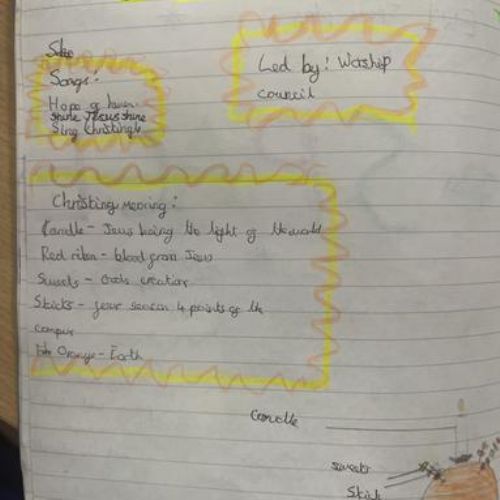 Songs:
Hope of heaven
Shine Jesus shine
Sing Christingle
Led by: Worship
council
Christing meaning:
Candle - Jesus being the light of the world
Red ribon - blood from Jesus
Sweets - Gods creation
Sticks - four season 4 points of the
compus
Orange - Earth
Candle
sweets
Stick